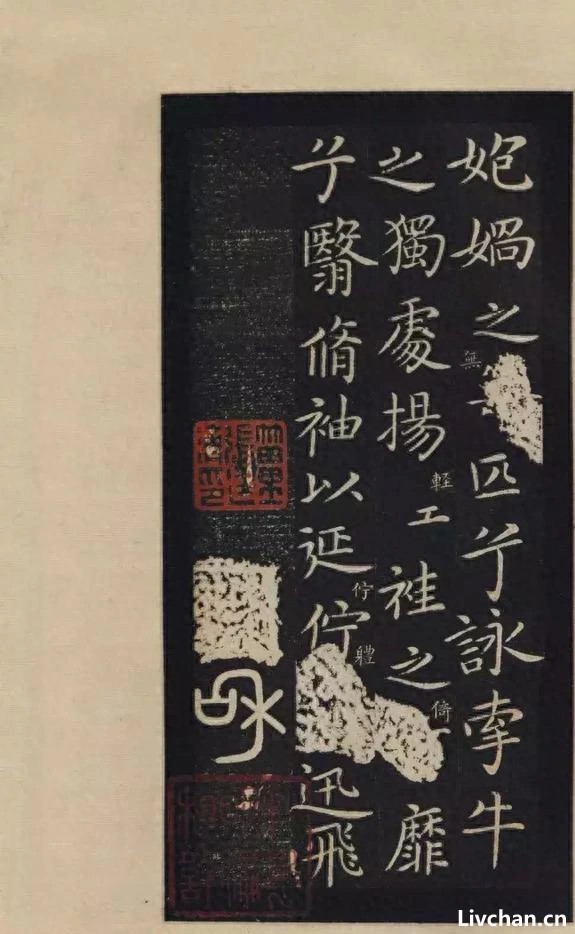 媧之無匹兮詠牽牛
之獨處揚輕袿之倚靡
兮翳脩袖以延佇佇體迅飛
Livchan.cn